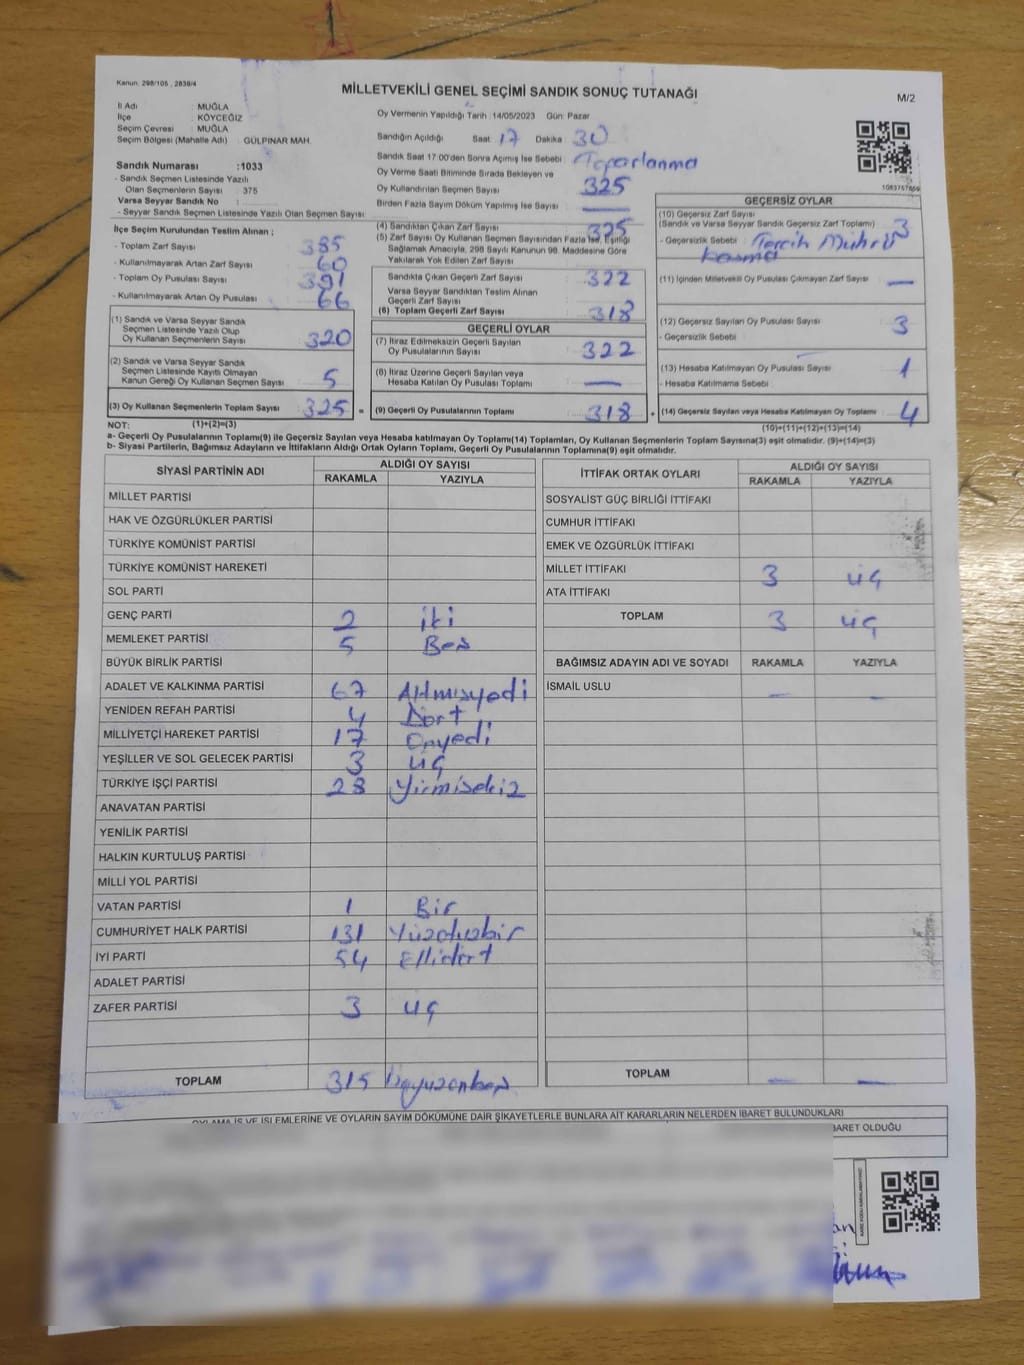 Kanun. 298/105 , 2839/4
MİLLETVEKİLİ GENEL SEÇİMİ SANDIK SONUÇ TUTANAĞI
M/2
İl Adı : MUĞLA
İlçe : KÖYCEĞİZ
Seçim Çevresi : MUĞLA
Seçim Bölgesi (Mahalle Adı) : GÜLPINAR MAH.
Oy Vermenin Yapıldığı Tarih : 14/05/2023 Gün: Pazar
Sandığın Açıldığı Saat 17 Dakika 30
Sandık Saat 17:00'den Sonra Açılmış İse Sebebi : Toparlanma
Oy Verme Saati Bitiminde Sırada Bekleyen ve
Oy Kullandırılan Seçmen Sayısı 325
Birden Fazla Sayım Döküm Yapılmış İse Sayısı : —
Sandık Numarası :1033
- Sandık Seçmen Listesinde Yazılı
Olan Seçmenlerin Sayısı : 375
Varsa Seyyar Sandık No :
- Seyyar Sandık Seçmen Listesinde Yazılı Olan Seçmen Sayısı
İlçe Seçim Kurulundan Teslim Alınan ;
- Toplam Zarf Sayısı : 385
- Kullanılmayarak Artan Zarf Sayısı : 60
- Toplam Oy Pusulası Sayısı : 391
- Kullanılmayarak Artan Oy Pusulası : 66
(1) Sandık ve Varsa Seyyar Sandık
Seçmen Listesinde Yazılı Olup
Oy Kullanan Seçmenlerin Sayısı : 320
(2) Sandık ve Varsa Seyyar Sandık
Seçmen Listesinde Kayıtlı Olmayan
Kanun Gereği Oy Kullanan Seçmen Sayısı : 5
(3) Oy Kullanan Seçmenlerin Toplam Sayısı : 325
(4) Sandıktan Çıkan Zarf Sayısı 325
(5) Zarf Sayısı Oy Kullanan Seçmen Sayısından Fazla İse, Eşitliği
Sağlamak Amacıyla, 298 Sayılı Kanunun 98. Maddesine Göre
Yakılarak Yok Edilen Zarf Sayısı
Sandıkta Çıkan Geçerli Zarf Sayısı : 322
Varsa Seyyar Sandıktan Teslim Alınan
Geçerli Zarf Sayısı
(6) Toplam Geçerli Zarf Sayısı : 318
GEÇERLİ OYLAR
(7) İtiraz Edilmeksizin Geçerli Sayılan
Oy Pusulalarının Sayısı : 322
(8) İtiraz Üzerine Geçerli Sayılan veya
Hesaba Katılan Oy Pusulası Toplamı : —
(9) Geçerli Oy Pusulalarının Toplamı : 318
1083757659
GEÇERSİZ OYLAR
(10) Geçersiz Zarf Sayısı
(Sandık ve Varsa Seyyar Sandık Geçersiz Zarf Toplamı) : 3
- Geçersizlik Sebebi : Tercih Mührü
basma
(11) İçinden Milletvekili Oy Pusulası Çıkmayan Zarf Sayısı : —
(12) Geçersiz Sayılan Oy Pusulası Sayısı : 3
- Geçersizlik Sebebi :
(13) Hesaba Katılmayan Oy Pusulası Sayısı : 1
- Hesaba Katılmama Sebebi :
(14) Geçersiz Sayılan veya Hesaba Katılmayan Oy Toplamı : 4
NOT: (1)+(2)=(3)
(10)+(11)+(12)+(13)=(14)
a- Geçerli Oy Pusulalarının Toplamı(9) ile Geçersiz Sayılan veya Hesaba katılmayan Oy Toplamı(14) Toplamları, Oy Kullanan Seçmenlerin Toplam Sayısına(3) eşit olmalıdır. (9)+(14)=(3)
b- Siyasi Partilerin, Bağımsız Adayların ve İttifakların Aldığı Ortak Oyların Toplamı, Geçerli Oy Pusulalarının Toplamına(9) eşit olmalıdır.
SİYASİ PARTİNİN ADI ALDIĞI OY SAYISI
RAKAMLA YAZIYLA
MİLLET PARTİSİ
HAK VE ÖZGÜRLÜKLER PARTİSİ
TÜRKİYE KOMÜNİST PARTİSİ
TÜRKİYE KOMÜNİST HAREKETİ
SOL PARTİ
GENÇ PARTİ 2 iki
MEMLEKET PARTİSİ 5 Beş
BÜYÜK BİRLİK PARTİSİ
ADALET VE KALKINMA PARTİSİ 67 Altmışyedi
YENİDEN REFAH PARTİSİ 4 Dört
MİLLİYETÇİ HAREKET PARTİSİ 17 Onyedi
YEŞİLLER VE SOL GELECEK PARTİSİ 3 üç
TÜRKİYE İŞÇİ PARTİSİ 28 Yirmisekiz
ANAVATAN PARTİSİ
YENİLİK PARTİSİ
HALKIN KURTULUŞ PARTİSİ
MİLLİ YOL PARTİSİ
VATAN PARTİSİ 1 Bir
CUMHURİYET HALK PARTİSİ 131 Yüzotuzbir
İYİ PARTİ 54 Ellidört
ADALET PARTİSİ
ZAFER PARTİSİ 3 üç
TOPLAM 315 üçyüzonbeş
İTTİFAK ORTAK OYLARI ALDIĞI OY SAYISI
RAKAMLA YAZIYLA
SOSYALİST GÜÇ BİRLİĞİ İTTİFAKI
CUMHUR İTTİFAKI
EMEK VE ÖZGÜRLÜK İTTİFAKI
MİLLET İTTİFAKI 3 üç
ATA İTTİFAKI
TOPLAM 3 üç
BAĞIMSIZ ADAYIN ADI VE SOYADI RAKAMLA YAZIYLA
İSMAİL USLU — —
TOPLAM — —
OYLAMA İŞ VE İŞLEMLERİNE VE OYLARIN SAYIM DÖKÜMÜNE DAİR ŞİKAYETLERLE BUNLARA AİT KARARLARIN NELERDEN İBARET BULUNDUKLARI
BARET OLDUĞU